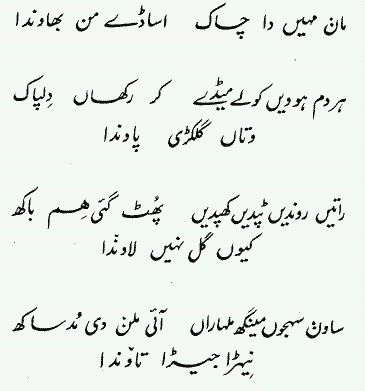 مان مہیں دا چاک اساڈے من بھاوندا
ہر دم ہوویں کولے میڈے کر رکھاں دِلپاک
وتاں گلکڑی پاوندا
راتیں روندیں ٹپدیں کھپدیں پُھٹ گئی ہِم باکھ
کیوں گل نہیں لاوندا
ساون سہجوں مینگھ ملہاراں آئی ملن دی مُد ساکھ
نِیہڑا جیڑا تاوندا